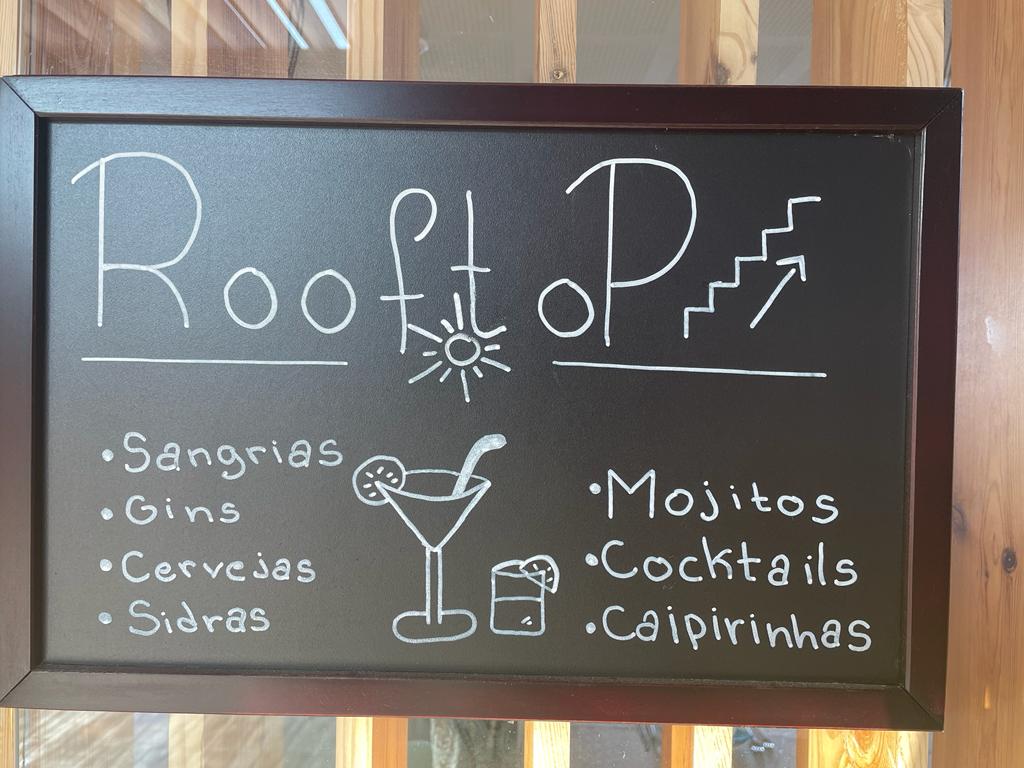 RooftoP
• Sangrias
• Gins
• Cervejas
• Sidras
• Mojitos
• Cocktails
• Caipirinhas